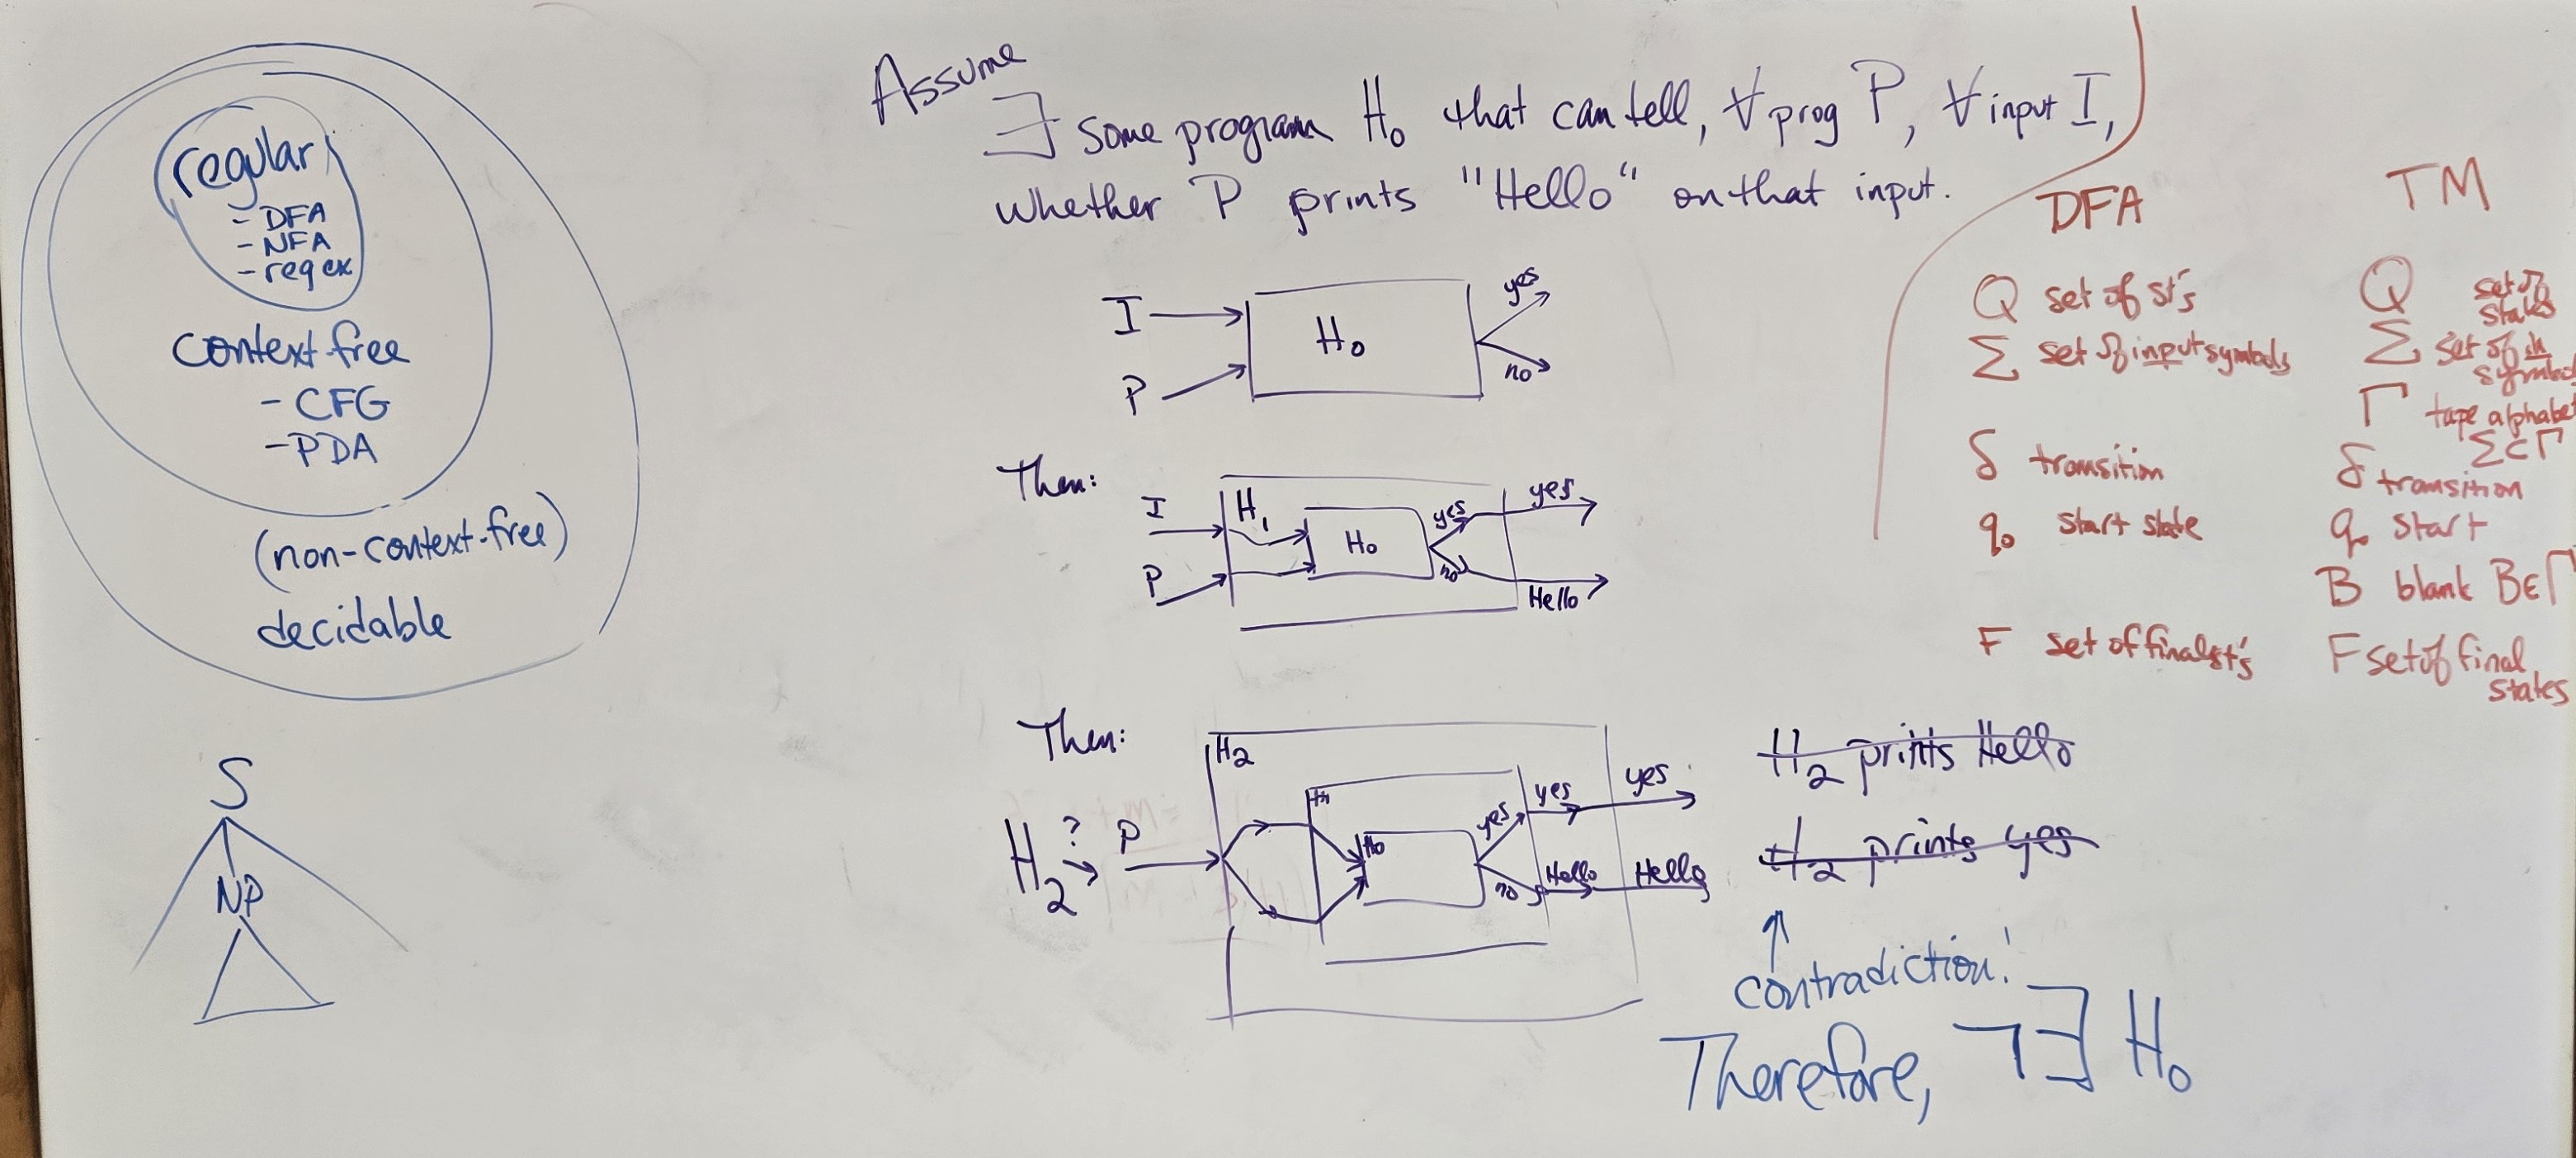 regular
- DFA
- NFA
- regex
context-free
- CFG
- PDA
(non-context-free)
decidable
S
NP
Assume
∃ some program H₀ that can tell, ∀ prog P, ∀ input I,
whether P prints "Hello" on that input.
I
P
H₀
yes
no
Then:
I
P
H₁
H₀
yes
no
yes
Hello
Then:
H₂
?
P
H₂
H₁
H₀
yes
no
yes
Hello
yes
Hello
H₂ prints Hello
H₂ prints yes
↑
contradiction!
Therefore, ¬∃ H₀
DFA
Q set of st's
Σ set of input symbols
δ transition
q₀ start state
F set of final st's
TM
Q set of states
Σ set of in symbol
Γ tape alphabet
Σ⊂Γ
δ transition
q₀ start
B blank B∈Γ
F set of final
states